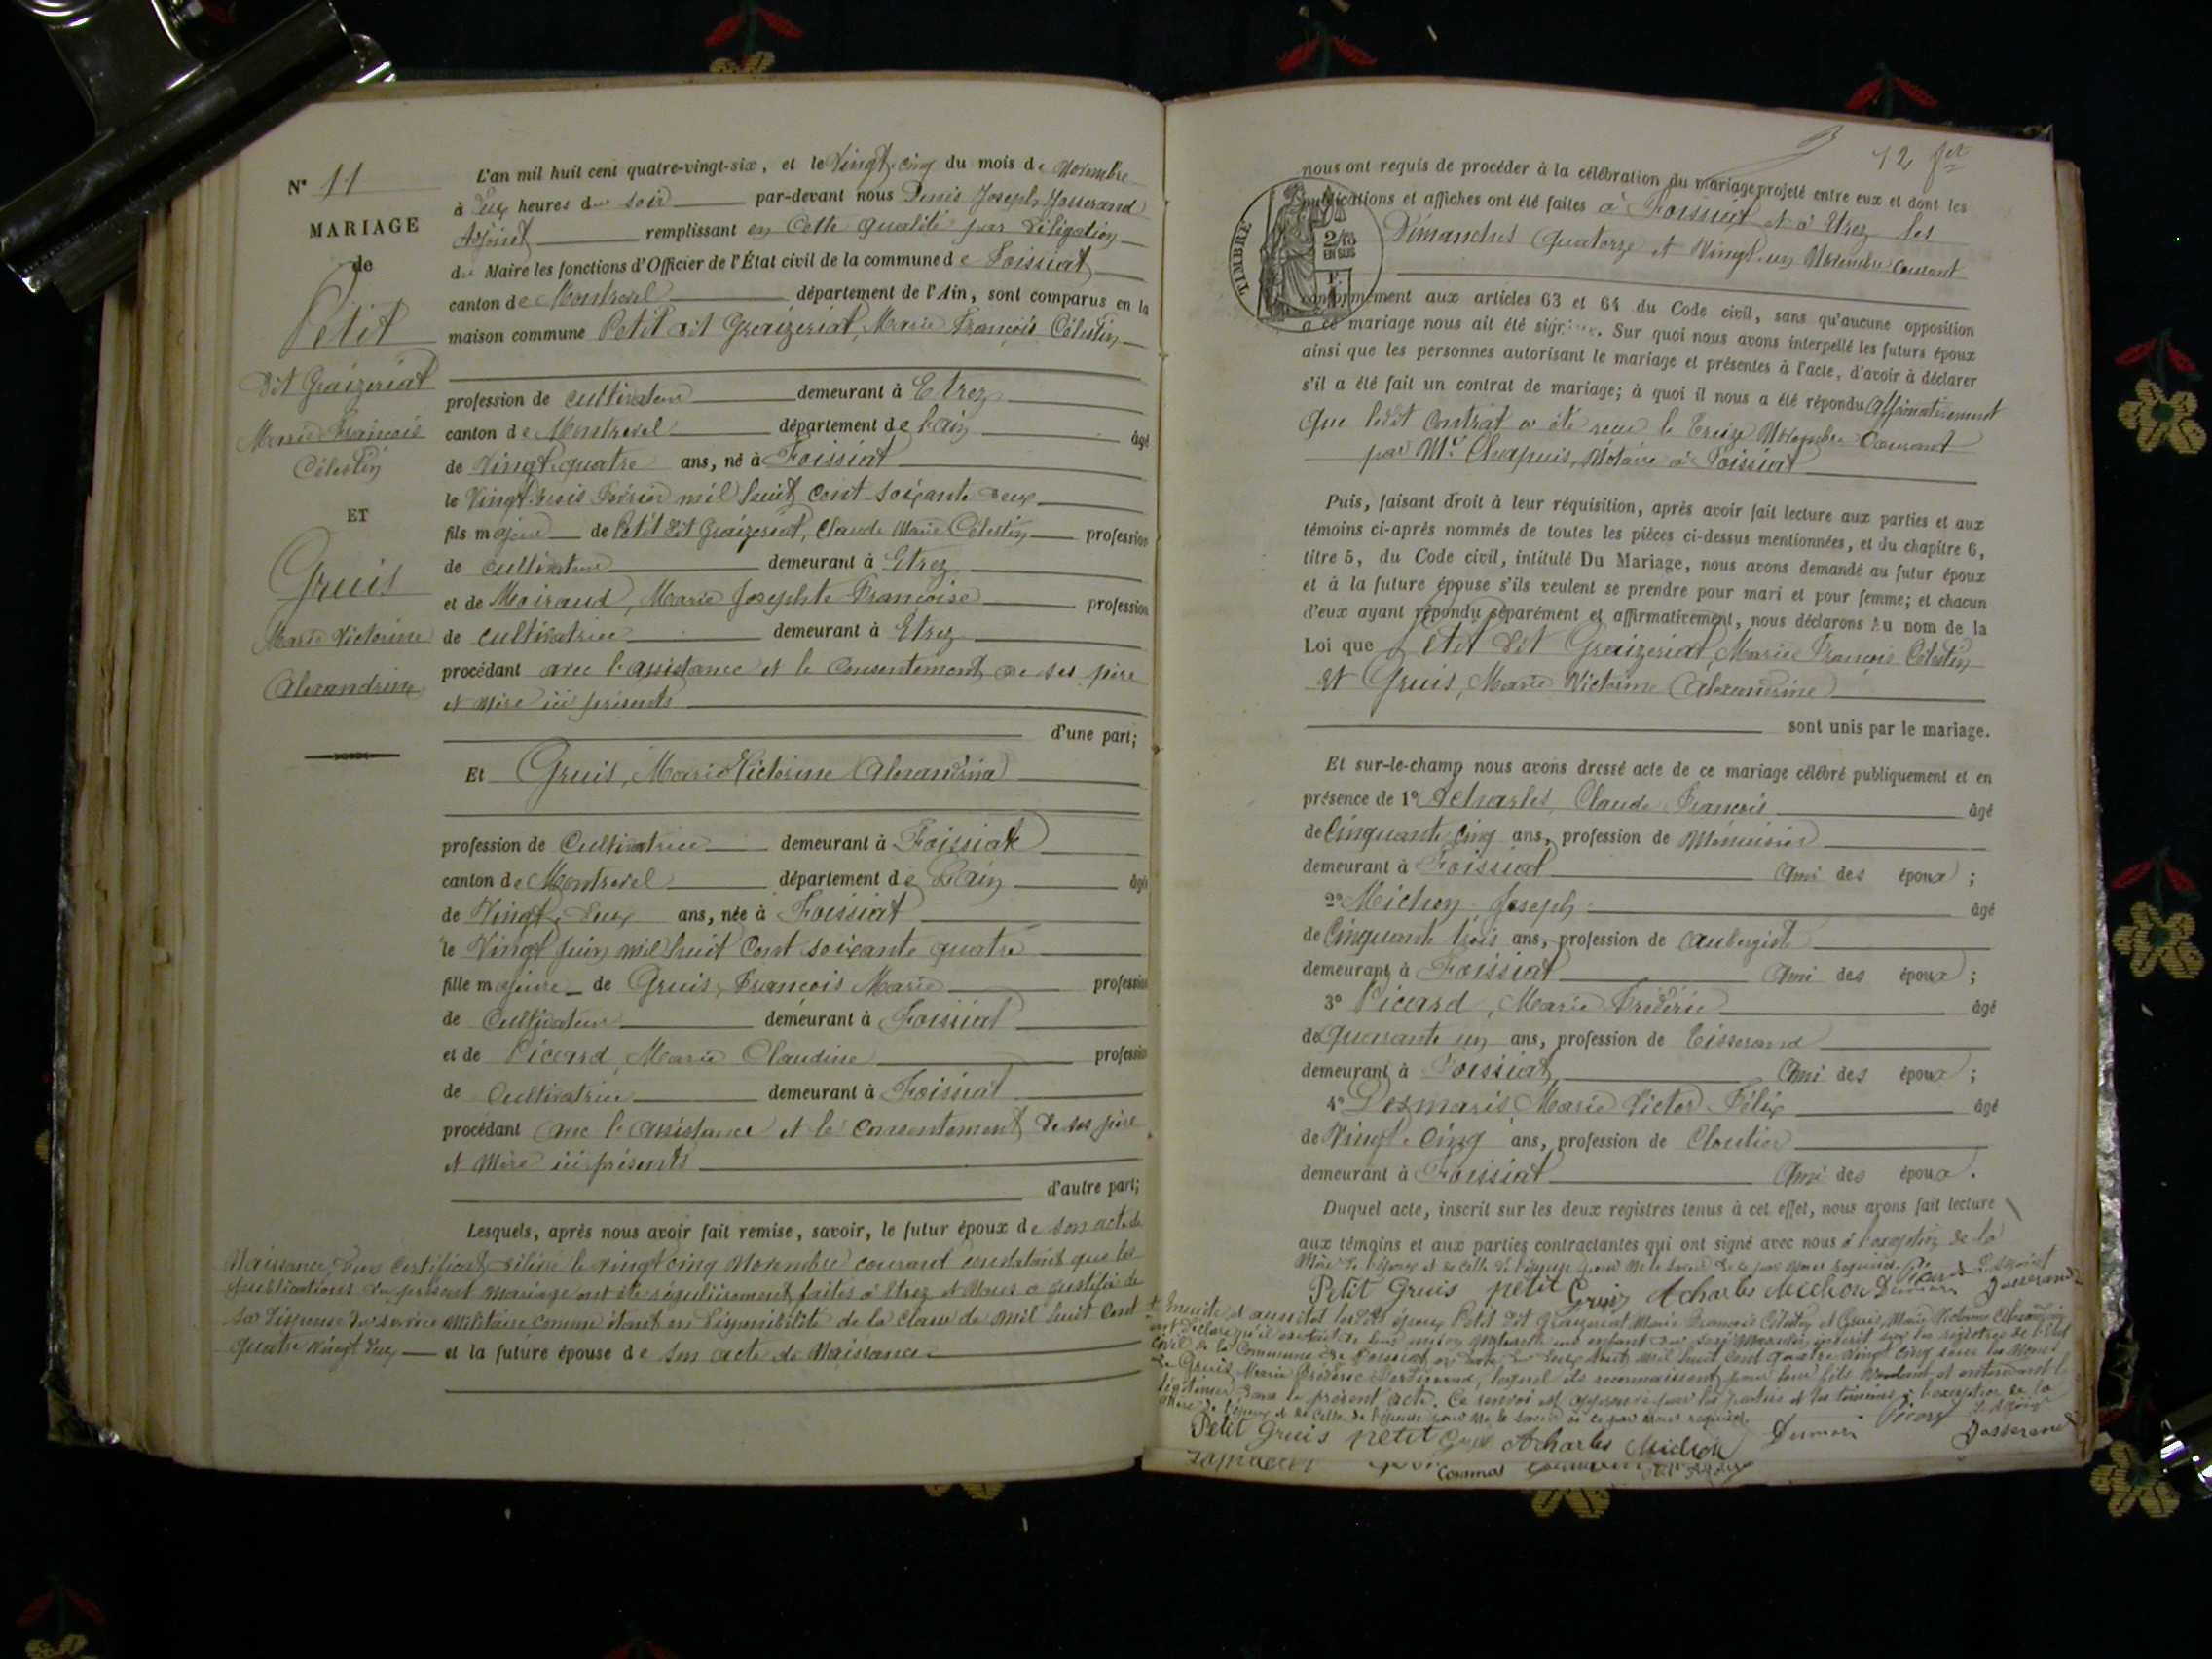 N° 11
MARIAGE
de
Petit
dit Graizeriat
Marie François
Célestin
ET
Gruis
Marie Victorine
Alexandrine
L'an mil huit cent quatre-vingt-six, et le Vingt-cinq du mois de Novembre
à deux heures du soir par-devant nous Denis Joseph Josserand
Adjoint remplissant en cette qualité par délégation
du Maire les fonctions d'Officier de l'État civil de la commune de Foissiat
canton de Montrevel département de l'Ain, sont comparus en la
maison commune Petit dit Graizeriat, Marie François Célestin
profession de cultivateur demeurant à Etrez
canton de Montrevel département de l'Ain âgé
de Vingt-quatre ans, né à Foissiat
le Vingt-trois Février mil huit cent soixante deux
fils majeur de Petit dit Graizeriat, Claude Marie Célestin profession
de cultivateur demeurant à Etrez
et de Moiraud, Marie Josephte Françoise profession
de cultivatrice demeurant à Etrez
procédant avec l'assistance et le consentement de ses père
et mère ici présents
d'une part;
Et Gruis, Marie Victorine Alexandrine
profession de Cultivatrice demeurant à Foissiat
canton de Montrevel département de l'Ain âgé
de Vingt-deux ans, née à Foissiat
le Vingt Juin mil huit cent soixante quatre
fille majeure de Gruis, François Marie profession
de Cultivateur demeurant à Foissiat
et de Picard, Marie Claudine profession
de Cultivatrice demeurant à Foissiat
procédant avec l'assistance et le consentement de ses père
et mère ici présents
d'autre part;
Lesquels, après nous avoir fait remise, savoir, le futur époux de son acte de
Naissance, d'un certificat délivré le vingt cinq Novembre courant constatant que les
publications du présent mariage ont été régulièrement faites à Etrez et Nous a justifié de
sa dispense du service militaire comme étant en disponibilité de la classe de mil huit cent
quatre vingt deux et la future épouse de son acte de Naissance
12 fet
TIMBRE
2/10
EN SUS
nous ont requis de procéder à la célébration du mariage projeté entre eux et dont les
publications et affiches ont été faites à Foissiat et à Etrez les
Dimanches Quatorze et Vingt-un Novembre courant
conformément aux articles 63 et 64 du Code civil, sans qu'aucune opposition
à ce mariage nous ait été signifiée. Sur quoi nous avons interpellé les futurs époux
ainsi que les personnes autorisant le mariage et présentes à l'acte, d'avoir à déclarer
s'il a été fait un contrat de mariage; à quoi il nous a été répondu affirmativement
que ledit contrat a été reçu le treize Novembre courant
par Me Chapuis, Notaire à Foissiat
Puis, faisant droit à leur réquisition, après avoir fait lecture aux parties et aux
témoins ci-après nommés de toutes les pièces ci-dessus mentionnées, et du chapitre 6,
titre 5, du Code civil, intitulé Du Mariage, nous avons demandé au futur époux
et à la future épouse s'ils veulent se prendre pour mari et pour femme; et chacun
d'eux ayant répondu séparément et affirmativement, nous déclarons au nom de la
Loi que Petit dit Graizeriat, Marie François Célestin
et Gruis, Marie Victorine Alexandrine
sont unis par le mariage.
Et sur-le-champ nous avons dressé acte de ce mariage célébré publiquement et en
présence de 1° Acharles, Claude François âgé
de Cinquante-cinq ans, profession de Menuisier
demeurant à Foissiat Ami des époux;
2° Michon Joseph âgé
de Cinquante trois ans, profession de aubergiste
demeurant à Foissiat Ami des époux;
3° Picard, Marie Frédéric âgé
de quarante un ans, profession de Tisserand
demeurant à Foissiat Ami des époux;
4° Desmaris Marie Victor Félix âgé
de Vingt-cinq ans, profession de Cloutier
demeurant à Foissiat Ami des époux.
Duquel acte, inscrit sur les deux registres tenus à cet effet, nous avons fait lecture
aux témoins et aux parties contractantes qui ont signé avec nous à l'exception de la
Mère de l'époux et de celle de l'épouse pour ne le savoir de ce par nous requises. Picard L'adjoint
Petit Gruis petit Gruis Acharles Michon Josserand
Ensuite et aussitôt lesdits époux Petit dit Graizeriat, Marie François Célestin et Gruis, Marie Victorine Alexandrine
ont déclaré qu'il est né un enfant du sexe masculin, inscrit sur les registres de l'état
civil de la commune de Foissiat en date du deux Août mil huit cent quatre vingt cinq sous les noms
de Gruis, Marie Frédéric, lequel ils reconnaissent pour leur fils et entendent le
légitimer dans le présent acte. Ce renvoi est approuvé par les parties et les témoins à l'exception de la
mère de l'époux et de celle de l'épouse pour ne le savoir de ce par nous requises.
Petit Gruis petit Gruis Acharles Michon Picard L'adjoint
Josserand